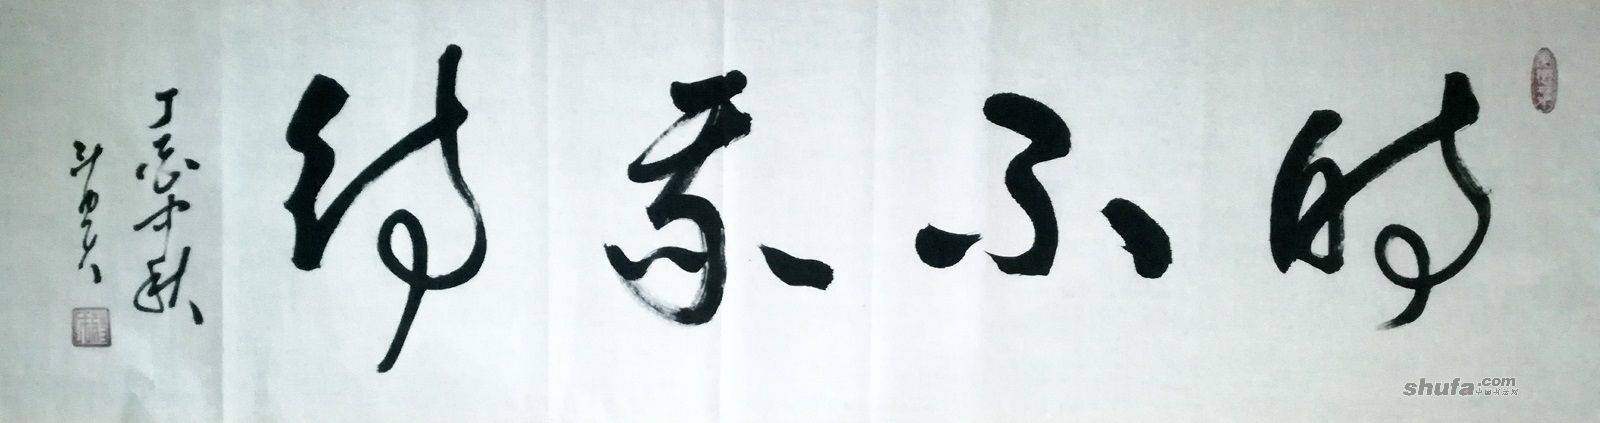 时不我待
丁中秋
shufa.com
中国书法网